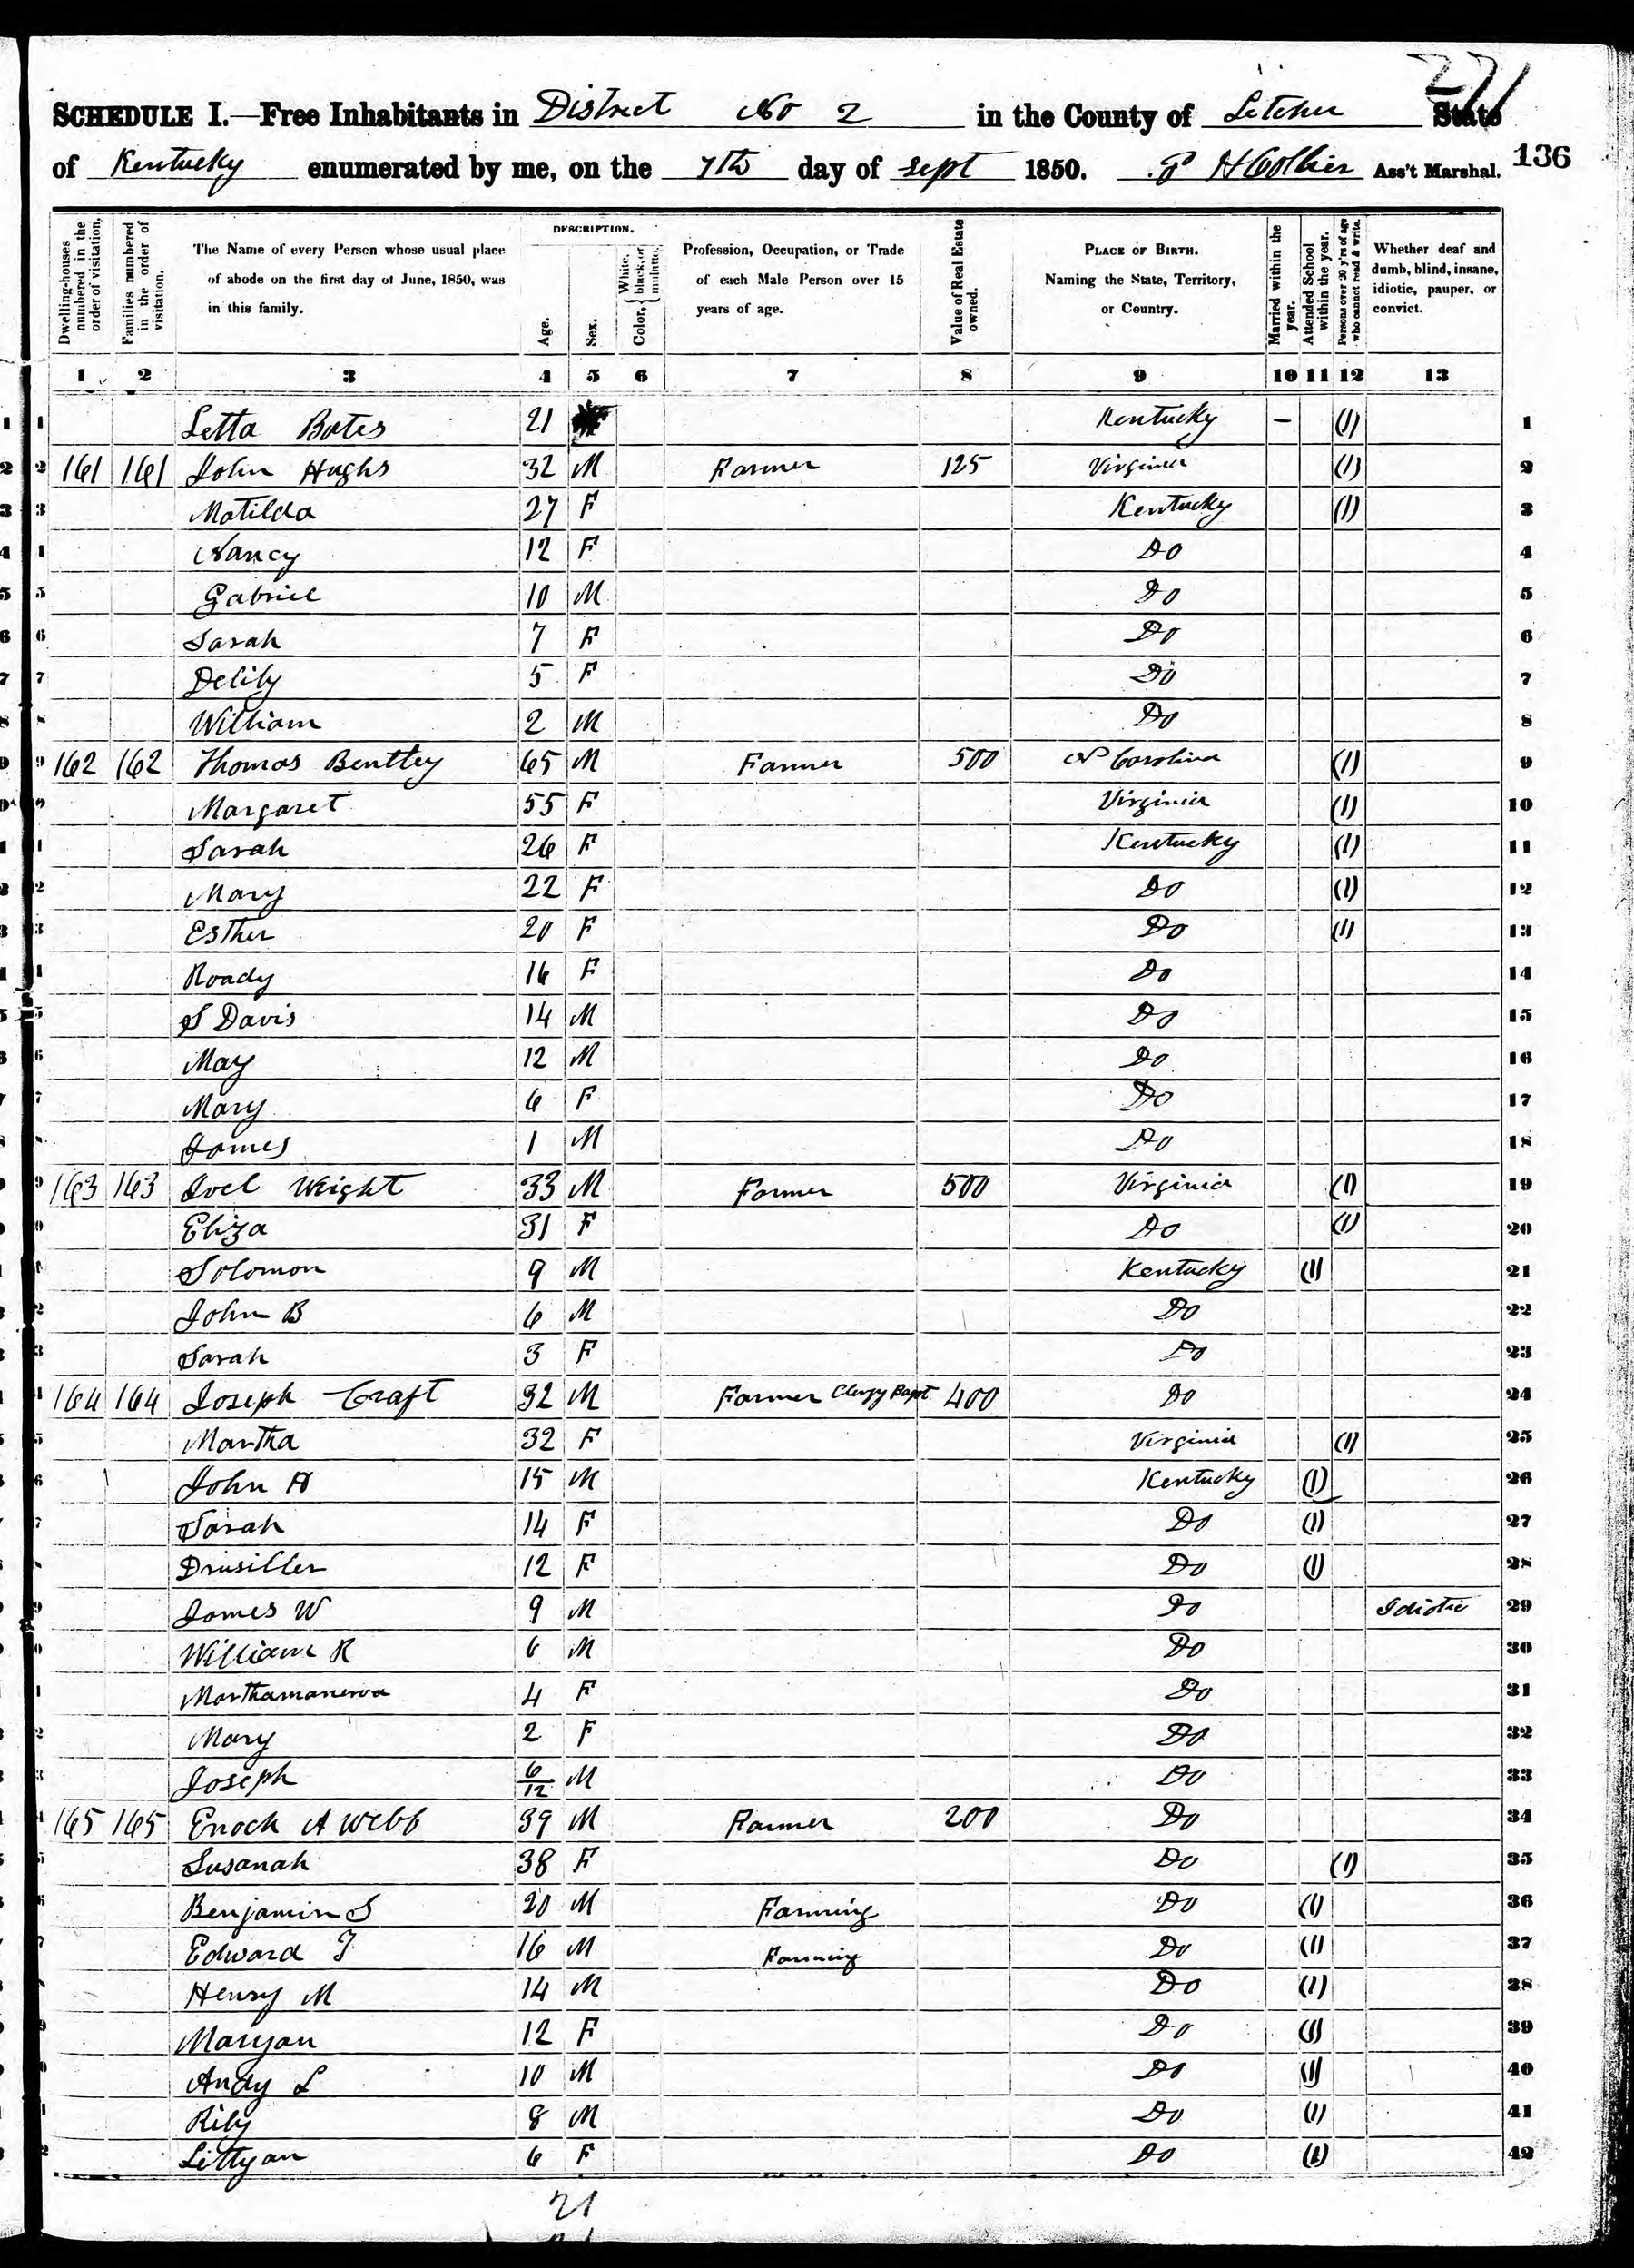 271
SCHEDULE I.—Free Inhabitants in District No 2 in the County of Letcher State
of Kentucky enumerated by me, on the 7th day of Sept 1850. P H Collier Ass't Marshal. 136
Dwelling-houses numbered in the order of visitation. Families numbered in the order of visitation. The Name of every Person whose usual place of abode on the first day of June, 1850, was in this family. DESCRIPTION. Age. Sex. Color, { White, black, or mulatto. Profession, Occupation, or Trade of each Male Person over 15 years of age. Value of Real Estate owned. PLACE OF BIRTH. Naming the State, Territory, or Country. Married within the year. Attended School within the year. Persons over 20 y'rs of age who cannot read & write. Whether deaf and dumb, blind, insane, idiotic, pauper, or convict.
1 2 3 4 5 6 7 8 9 10 11 12 13
1 Letta Bates 21 Kentucky – (1) 1
2 161 161 John Hughs 32 M Farmer 125 Virginia (1) 2
3 Matilda 27 F Kentucky (1) 3
4 Nancy 12 F Do 4
5 Gabriel 10 M Do 5
6 Sarah 7 F Do 6
7 Delily 5 F Do 7
8 William 2 M Do 8
9 162 162 Thomas Bentley 65 M Farmer 500 N Carolina (1) 9
Margaret 55 F Virginia (1) 10
Sarah 26 F Kentucky (1) 11
Mary 22 F Do (1) 12
Esther 20 F Do (1) 13
Roady 16 F Do 14
S Davis 14 M Do 15
May 12 M Do 16
Mary 6 F Do 17
James 1 M Do 18
163 163 Joel Wright 33 M Farmer 500 Virginia (1) 19
Eliza 31 F Do (1) 20
Solomon 9 M Kentucky (1) 21
John B 6 M Do 22
Sarah 3 F Do 23
164 164 Joseph Craft 32 M Farmer Clergy Bapt 400 Do 24
Martha 32 F Virginia (1) 25
John A 15 M Kentucky (1) 26
Sarah 14 F Do (1) 27
Drusiller 12 F Do (1) 28
James W 9 M Do Idiotic 29
William R 6 M Do 30
Marthamanerva 4 F Do 31
Mary 2 F Do 32
Joseph 6/12 M Do 33
165 165 Enoch A Webb 39 M Farmer 200 Do 34
Susanah 38 F Do (1) 35
Benjamin S 20 M Farming Do (1) 36
Edward T 16 M Farming Do (1) 37
Henry M 14 M Do (1) 38
Maryan 12 F Do (1) 39
Andy L 10 M Do (1) 40
Rily 8 M Do (1) 41
Littyan 6 F Do (1) 42
21